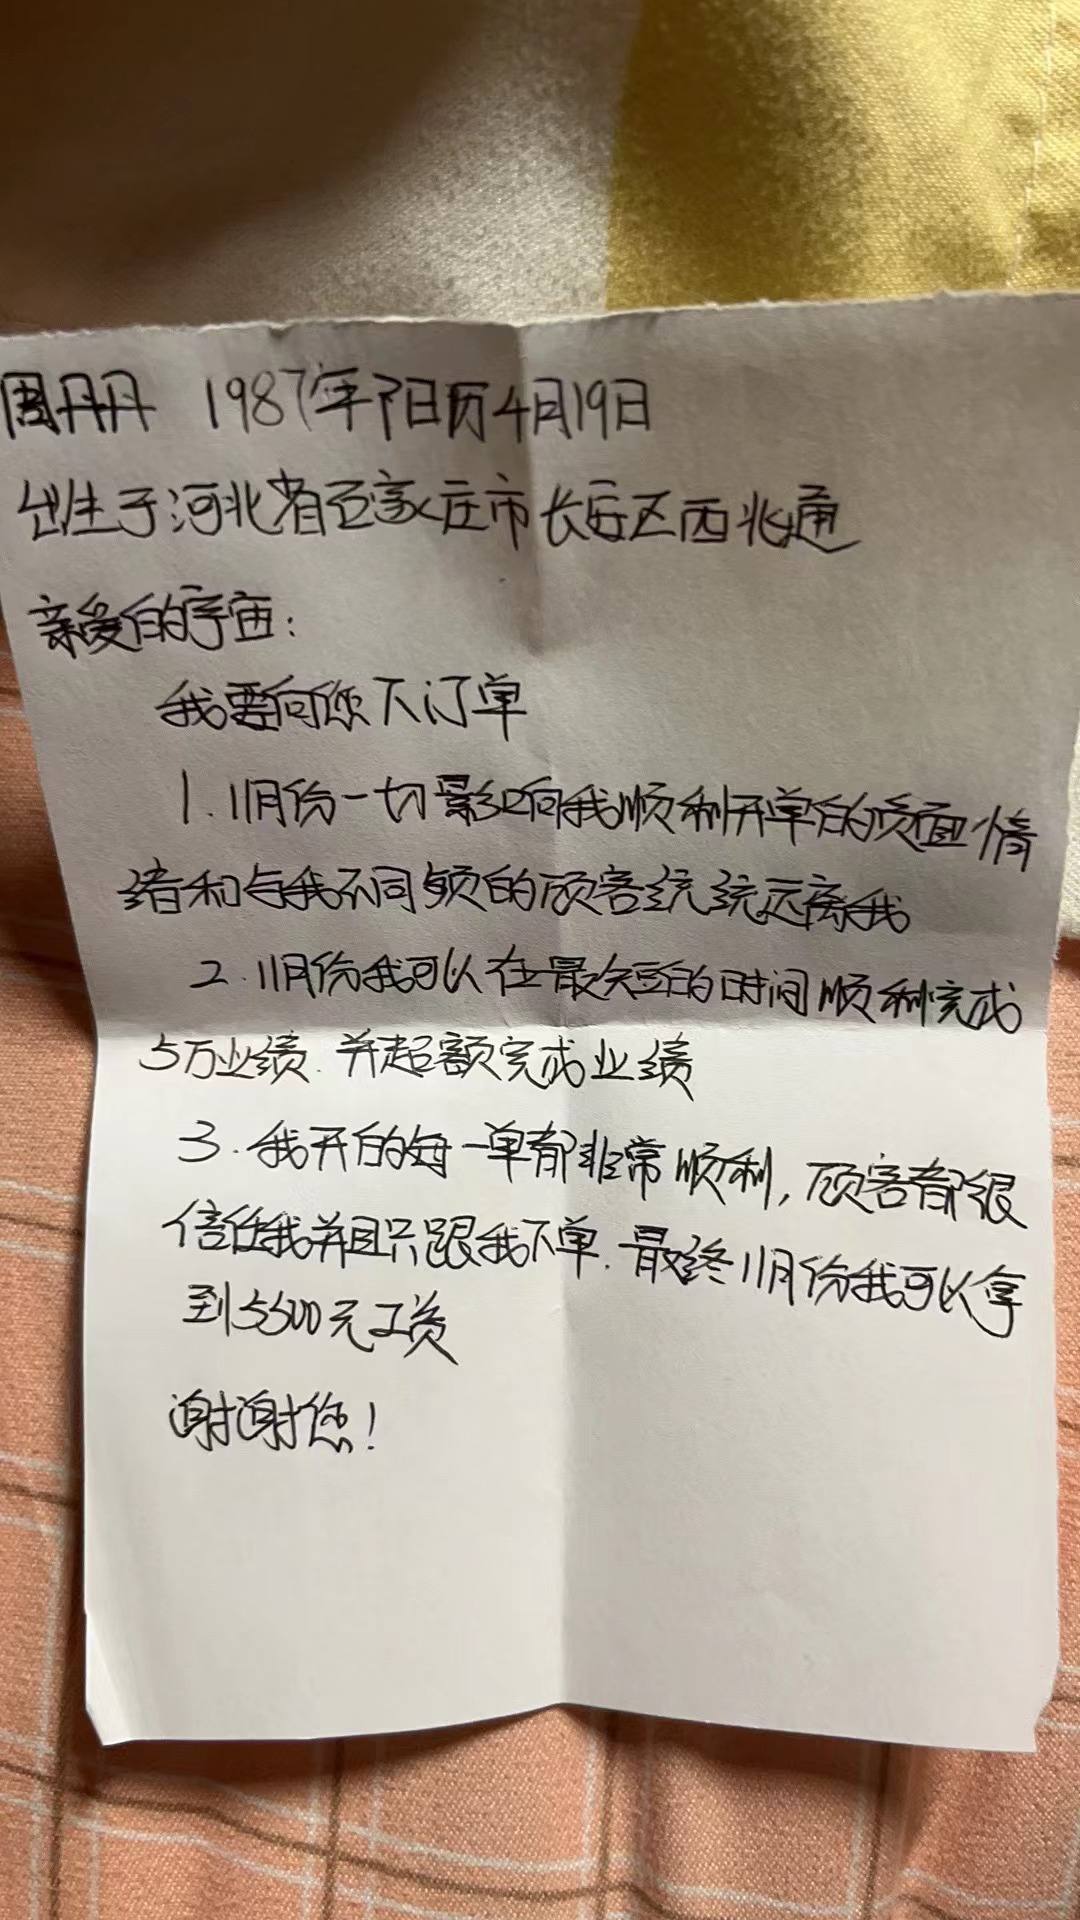 周丹丹 1987年阳历4月19日
出生于河北省石家庄市长安区西兆通
亲爱的宇宙:
我要向您下订单
1.11月份一切影响我顺利开单的负面情
绪和与我不同频的顾客统统远离我
2.11月份我可以在最短的时间顺利完成
5万业绩.并超额完成业绩
3.我开的每一单都非常顺利,顾客都很
信任我并且只跟我下单.最终11月份我可以拿
到5500元工资
谢谢您!